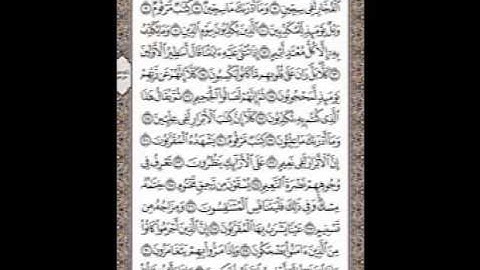 ٱلْفُجَّارِ لَفِي سِجِّينٍ ٧ وَمَآ أَدْرَىٰكَ مَا سِجِّينٌ ٨ كِتَٰبٌ مَّرْقُومٌ ٩
وَيْلٌ يَوْمَئِذٍ لِّلْمُكَذِّبِينَ ١٠ ٱلَّذِينَ يُكَذِّبُونَ بِيَوْمِ ٱلدِّينِ ١١ وَمَا يُكَذِّبُ
بِهِۦٓ إِلَّا كُلُّ مُعْتَدٍ أَثِيمٍ ١٢ إِذَا تُتْلَىٰ عَلَيْهِ ءَايَٰتُنَا قَالَ أَسَٰطِيرُ ٱلْأَوَّلِينَ ١٣
كَلَّا بَلْ رَانَ عَلَىٰ قُلُوبِهِم مَّا كَانُوا۟ يَكْسِبُونَ ١٤ كَلَّآ إِنَّهُمْ عَن رَّبِّهِمْ
يَوْمَئِذٍ لَّمَحْجُوبُونَ ١٥ ثُمَّ إِنَّهُمْ لَصَالُوا۟ ٱلْجَحِيمِ ١٦ ثُمَّ يُقَالُ هَٰذَا
ٱلَّذِي كُنتُم بِهِۦ تُكَذِّبُونَ ١٧ كَلَّآ إِنَّ كِتَٰبَ ٱلْأَبْرَارِ لَفِي عِلِّيِّينَ ١٨
وَمَآ أَدْرَىٰكَ مَا عِلِّيُّونَ ١٩ كِتَٰبٌ مَّرْقُومٌ ٢٠ يَشْهَدُهُ ٱلْمُقَرَّبُونَ ٢١
إِنَّ ٱلْأَبْرَارَ لَفِي نَعِيمٍ ٢٢ عَلَى ٱلْأَرَآئِكِ يَنظُرُونَ ٢٣ تَعْرِفُ فِي
وُجُوهِهِمْ نَضْرَةَ ٱلنَّعِيمِ ٢٤ يُسْقَوْنَ مِن رَّحِيقٍ مَّخْتُومٍ ٢٥ خِتَٰمُهُۥ
مِسْكٌ وَفِي ذَٰلِكَ فَلْيَتَنَافَسِ ٱلْمُتَنَٰفِسُونَ ٢٦ وَمِزَاجُهُۥ مِن
تَسْنِيمٍ ٢٧ عَيْنًا يَشْرَبُ بِهَا ٱلْمُقَرَّبُونَ ٢٨ إِنَّ ٱلَّذِينَ أَجْرَمُوا۟ كَانُوا۟
مِنَ ٱلَّذِينَ ءَامَنُوا۟ يَضْحَكُونَ ٢٩ وَإِذَا مَرُّوا۟ بِهِمْ يَتَغَامَزُونَ ٣٠